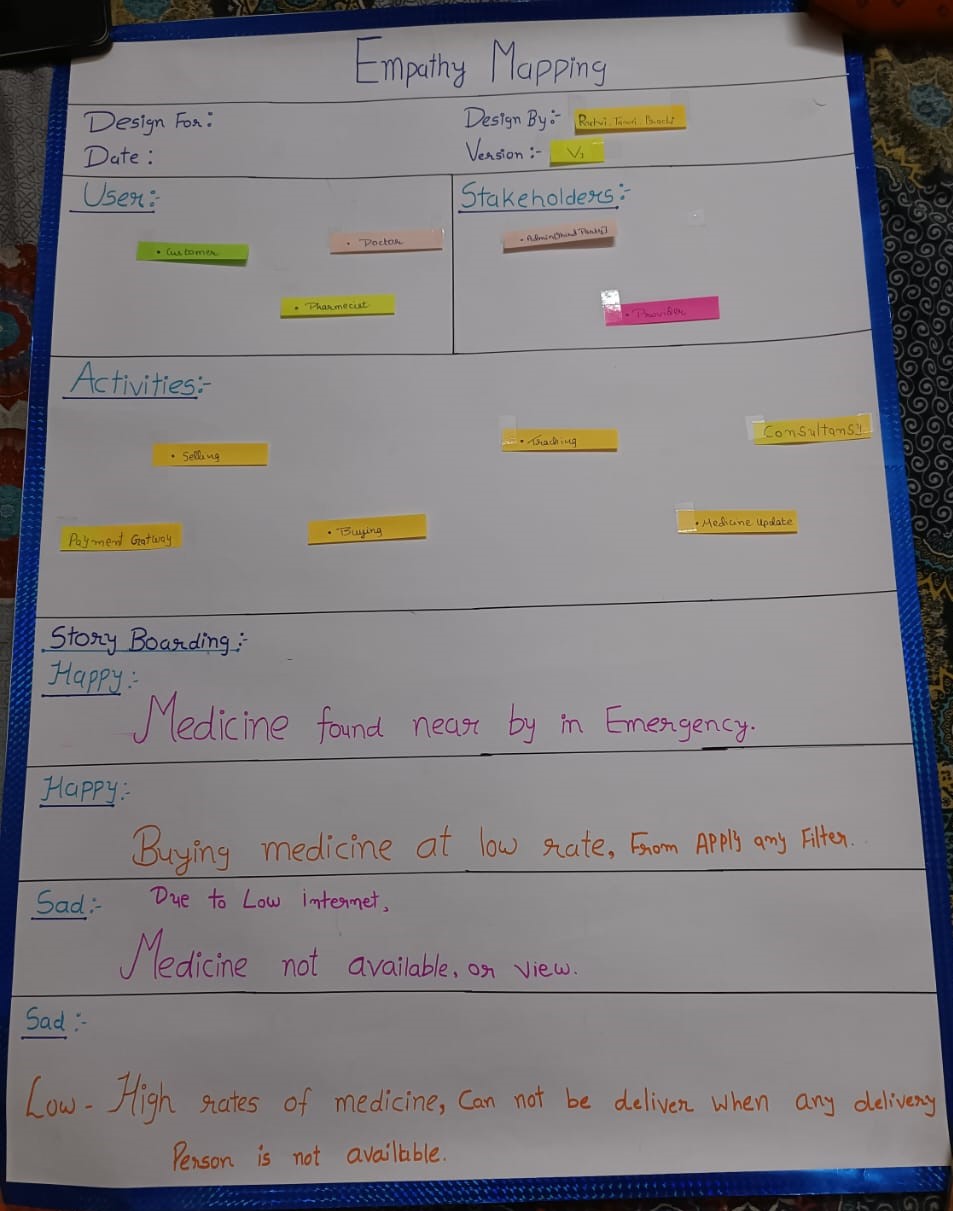 Empathy Mapping
Design For:
Design By:-
Date:
Version:- V1
User:-
• Customer
• Doctor
• Pharmecist
Stakeholders:-
• Admin(Third Party)
• Provider
Activities:-
• Selling
• Tracking
Consultansy
Payment Gatway
• Buying
• Medicine Update
Story Boarding:-
Happy:-
Medicine found near by in Emergency.
Happy:-
Buying medicine at low rate, From APPly any Filter.
Sad:- Due to Low internet,
Medicine not available, or view.
Sad:-
Low - High rates of medicine, Can not be deliver when any delivery
Person is not available.